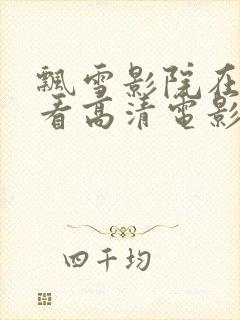 飘雪影院在
看高清电影
四千均